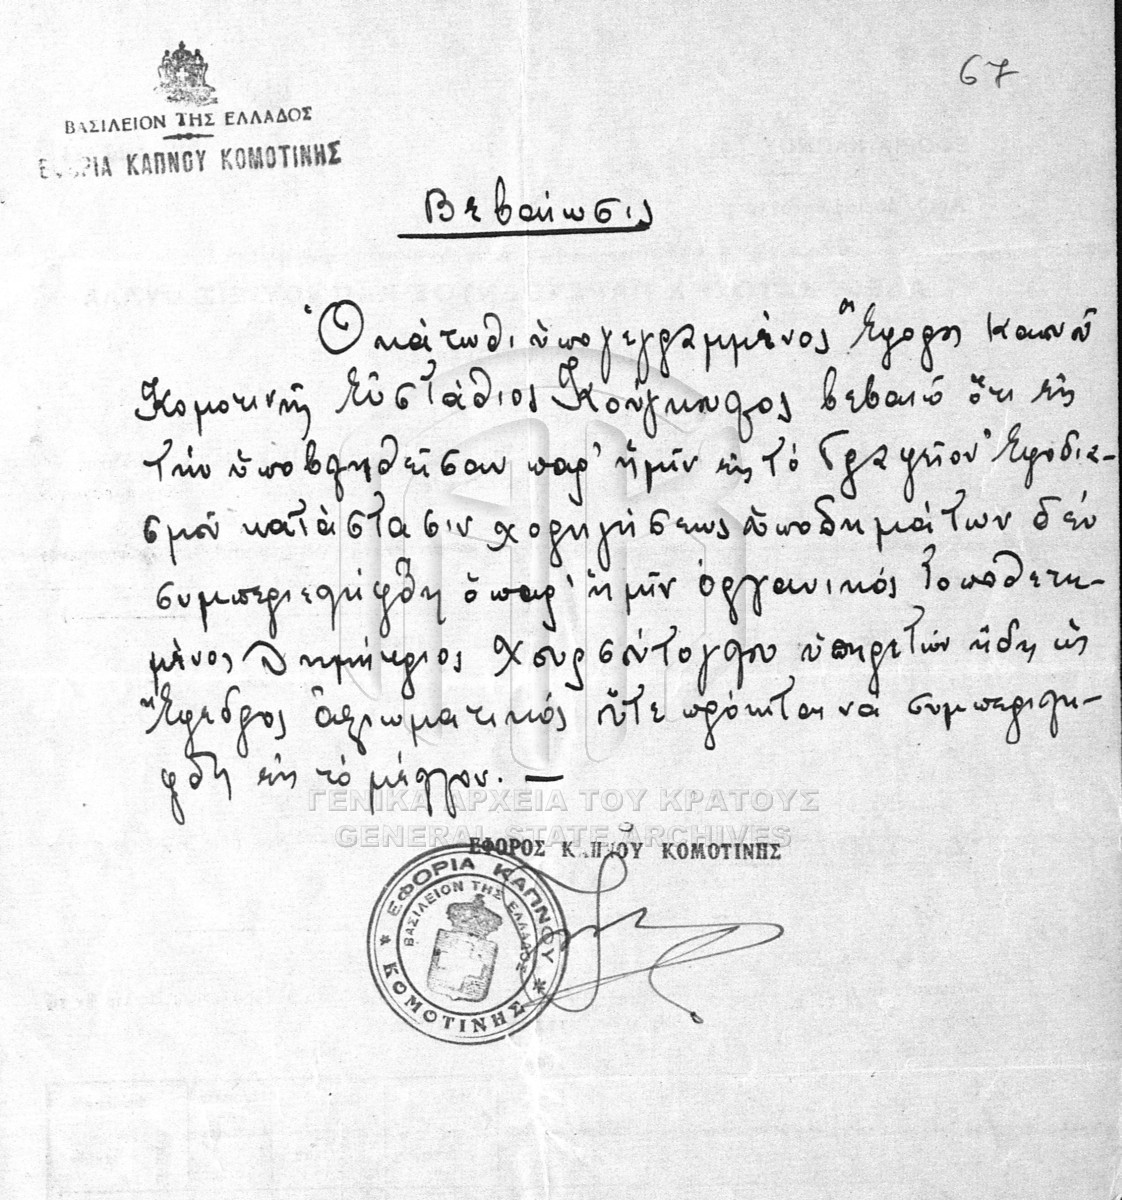 67
ΒΑΣΙΛΕΙΟΝ ΤΗΣ ΕΛΛΑΔΟΣ
ΕΦΟΡΙΑ ΚΑΠΝΟΥ ΚΟΜΟΤΙΝΗΣ
Βεβαίωσις
Ὁ κάτωθι ὑπογεγραμμένος Ἔφορος Καπνοῦ
Κομοτινῆς Εὐστάθιος βεβαιῶ ὅτι εἰς
τὴν ὑποβληθεῖσαν παρ' ἡμῖν εἰς τὸ Γραφεῖον Ἐφοδια-
σμοῦ κατάστασιν χορηγήσεως ὑποδημάτων δὲν
συμπεριελήφθη ὁ παρ' ἡμῖν ὀργανικῶς τοποθετη-
μένος Δημήτριος Χουρσόντογλου ὑπηρετῶν ἤδη ὡς
Ἔφεδρος ἀξιωματικός οὔτε πρόκειται νὰ συμπεριλη-
φθῇ εἰς τὸ μέλλον. —
ΓΕΝΙΚΑ ΑΡΧΕΙΑ ΤΟΥ ΚΡΑΤΟΥΣ
GENERAL STATE ARCHIVES
ΕΦΟΡΟΣ ΚΑΠΝΟΥ ΚΟΜΟΤΙΝΗΣ
ΕΦΟΡΙΑ ΚΑΠΝΟΥ
ΒΑΣΙΛΕΙΟΝ ΤΗΣ ΕΛΛΑΔΟΣ
* ΚΟΜΟΤΙΝΗΣ *